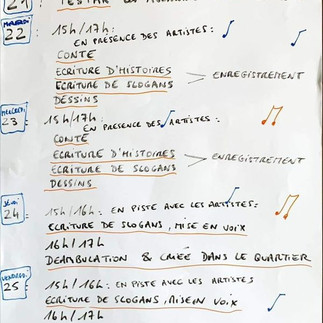 21 : TESTAR
MERCREDI
22 : 15H/17H :
EN PRESENCE DES ARTISTES :
CONTE
ECRITURE D'HISTOIRES
ECRITURE DE SLOGANS
ENREGISTREMENT
DESSINS
MERCREDI
23 : 15H/17H :
EN PRESENCE DES ARTISTES :
CONTE
ECRITURE D'HISTOIRES
ECRITURE DE SLOGANS
ENREGISTREMENT
DESSINS
JEUDI
24 : 15H/16H : EN PISTE AVEC LES ARTISTES :
ECRITURE DE SLOGANS, MISE EN VOIX
16H/17H
DEAMBULATION & CRIÉE DANS LE QUARTIER
VENDREDI
25 : 15H/16H : EN PISTE AVEC LES ARTISTES
ECRITURE DE SLOGANS, MISE EN VOIX
16H/17H